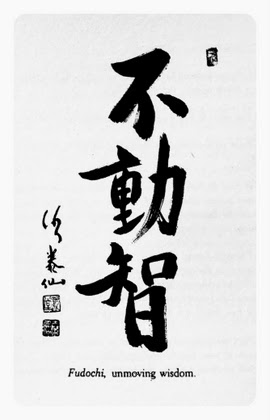 不動智
泰仙
Fudochi, unmoving wisdom.